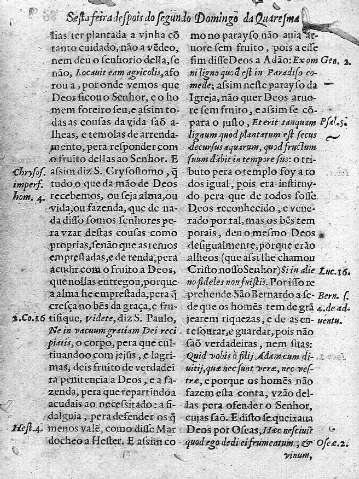 Sesta feira despois do segundo Domingo da Quaresma
lias ter plantada a vinha cõ
tanto cuidado, não a védeo,
nem deu o senhorio della, se
não, Locauit eam agricolis, afo
rou a, por onde vemos que
Deos ficou o Senhor, e o ho
mem foreiro seu, e assim to
das as cousas da vida saõ a-
lheas, e temolas de arrenda-
mento, pera responder com
o fruito dellas ao Senhor. E
assim diz S. Grysostomo, q̃
tudo o que da mão de Deos
recebemos, ou seja alma, ou
vida, ou fazenda, que de na-
da disso somos senhores pe-
ra vzar destas cousas como
proprias, senão que as temos
emprestadas, e de renda, pera
acudir com o fruito a Deos,
que nollas entregou, porque
a alma he emprestada, pera q̃
creça no bés da graça, e fru-
tifique, Videte, diz S. Paulo,
Ne in vacuum gratiam Dei reci
piatis, o corpo, pera que cul-
tiuandoo com jejus, e lagri-
mas, deis fruito de verdadei
ra penitencia a Deos, e a fa-
zenda, pera que repartindoa
acudais ao necessitado: a fi-
dalguia, pera defender os q̃
menos valé, como disse Mar
docheo a Hester. E assim co
Chrysost.
imperf.
hom. 4.
2. Co. 16
Hest 4.
mo no parayso não auia ar
uore sem fruito, pois a esse
fim disse Deos a Adão: Ex om
ni ligno quod est in Paradiso co
mede; assim neste parayso da
Igreja, não quer Deos aruo-
re sem fruito, e assim se cõ-
para o justo, Et erit tanquam
lignum quod plantatum est secus
decursus aquarum, quod fructum
suum dabit in tempore suo: o tri-
buto pera o templo foy a to
dos igual, pois era instituy-
do pera que de todos fosse
Deos reconhecido, e vene-
rado por tal, mas os bẽs tem
porais, deu o mesmo Deos
desigualmente, porque erão
alheos (que assi lhe chamou
Christo nosso Senhor) Si in alie
no fideles non fuistis. Por isso re
prehende São Bernardo a se-
de que os homés tem de grã
jearem riquezas, e de as en-
tesourar, e guardar, pois não
saõ verdadeiras, nem suas:
Quid vobis ò filij Adam cum di-
uitijs, quæ nec sunt veræ, nec ve-
stræ, e porque os homẽs não
fazem esta cõta, vzão del-
las pera ofender o Senhor,
cujas saõ. E disto se queixaua
Deos por Oseas, Hæc nesciuit
quod ego dedi ei frumentum, &
vinum,
Gen. 2.
Psal. 1.
Luc. 16.
Bern. s.
4. de ad-
uentu.
Oseæ 2.